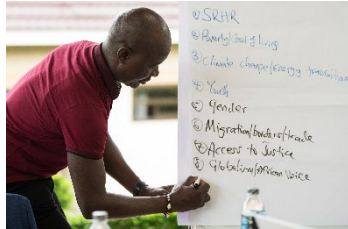 ① SRHR
② Poverty/Cost of living
③ Climate change/energy transition
④ Youth
⑤ Gender
⑥ Migration/borders/trade
⑦ Access to Justice
⑧ Globalising African Voice